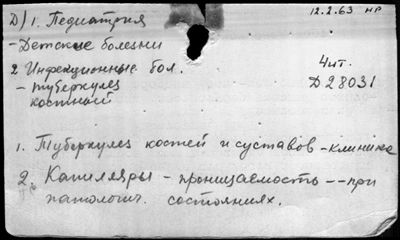 Д) 1. Педиатрия
12.2.63 нр
- Детские болезни
2 Инфекционные бол.
- туберкулез
костный
Чит.
Д 28031
1. Туберкулез костей и суставов - клиника
2. Капилляры - проницаемость -- при
патологич. состояниях.